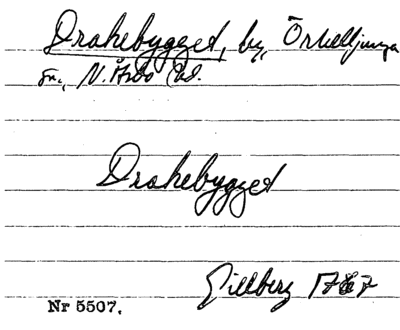 Drakebygget, by, Örkelljunga
sn., N. Åsbo hd.
Drakebygget
Gillberg 1767
Nr 5507.